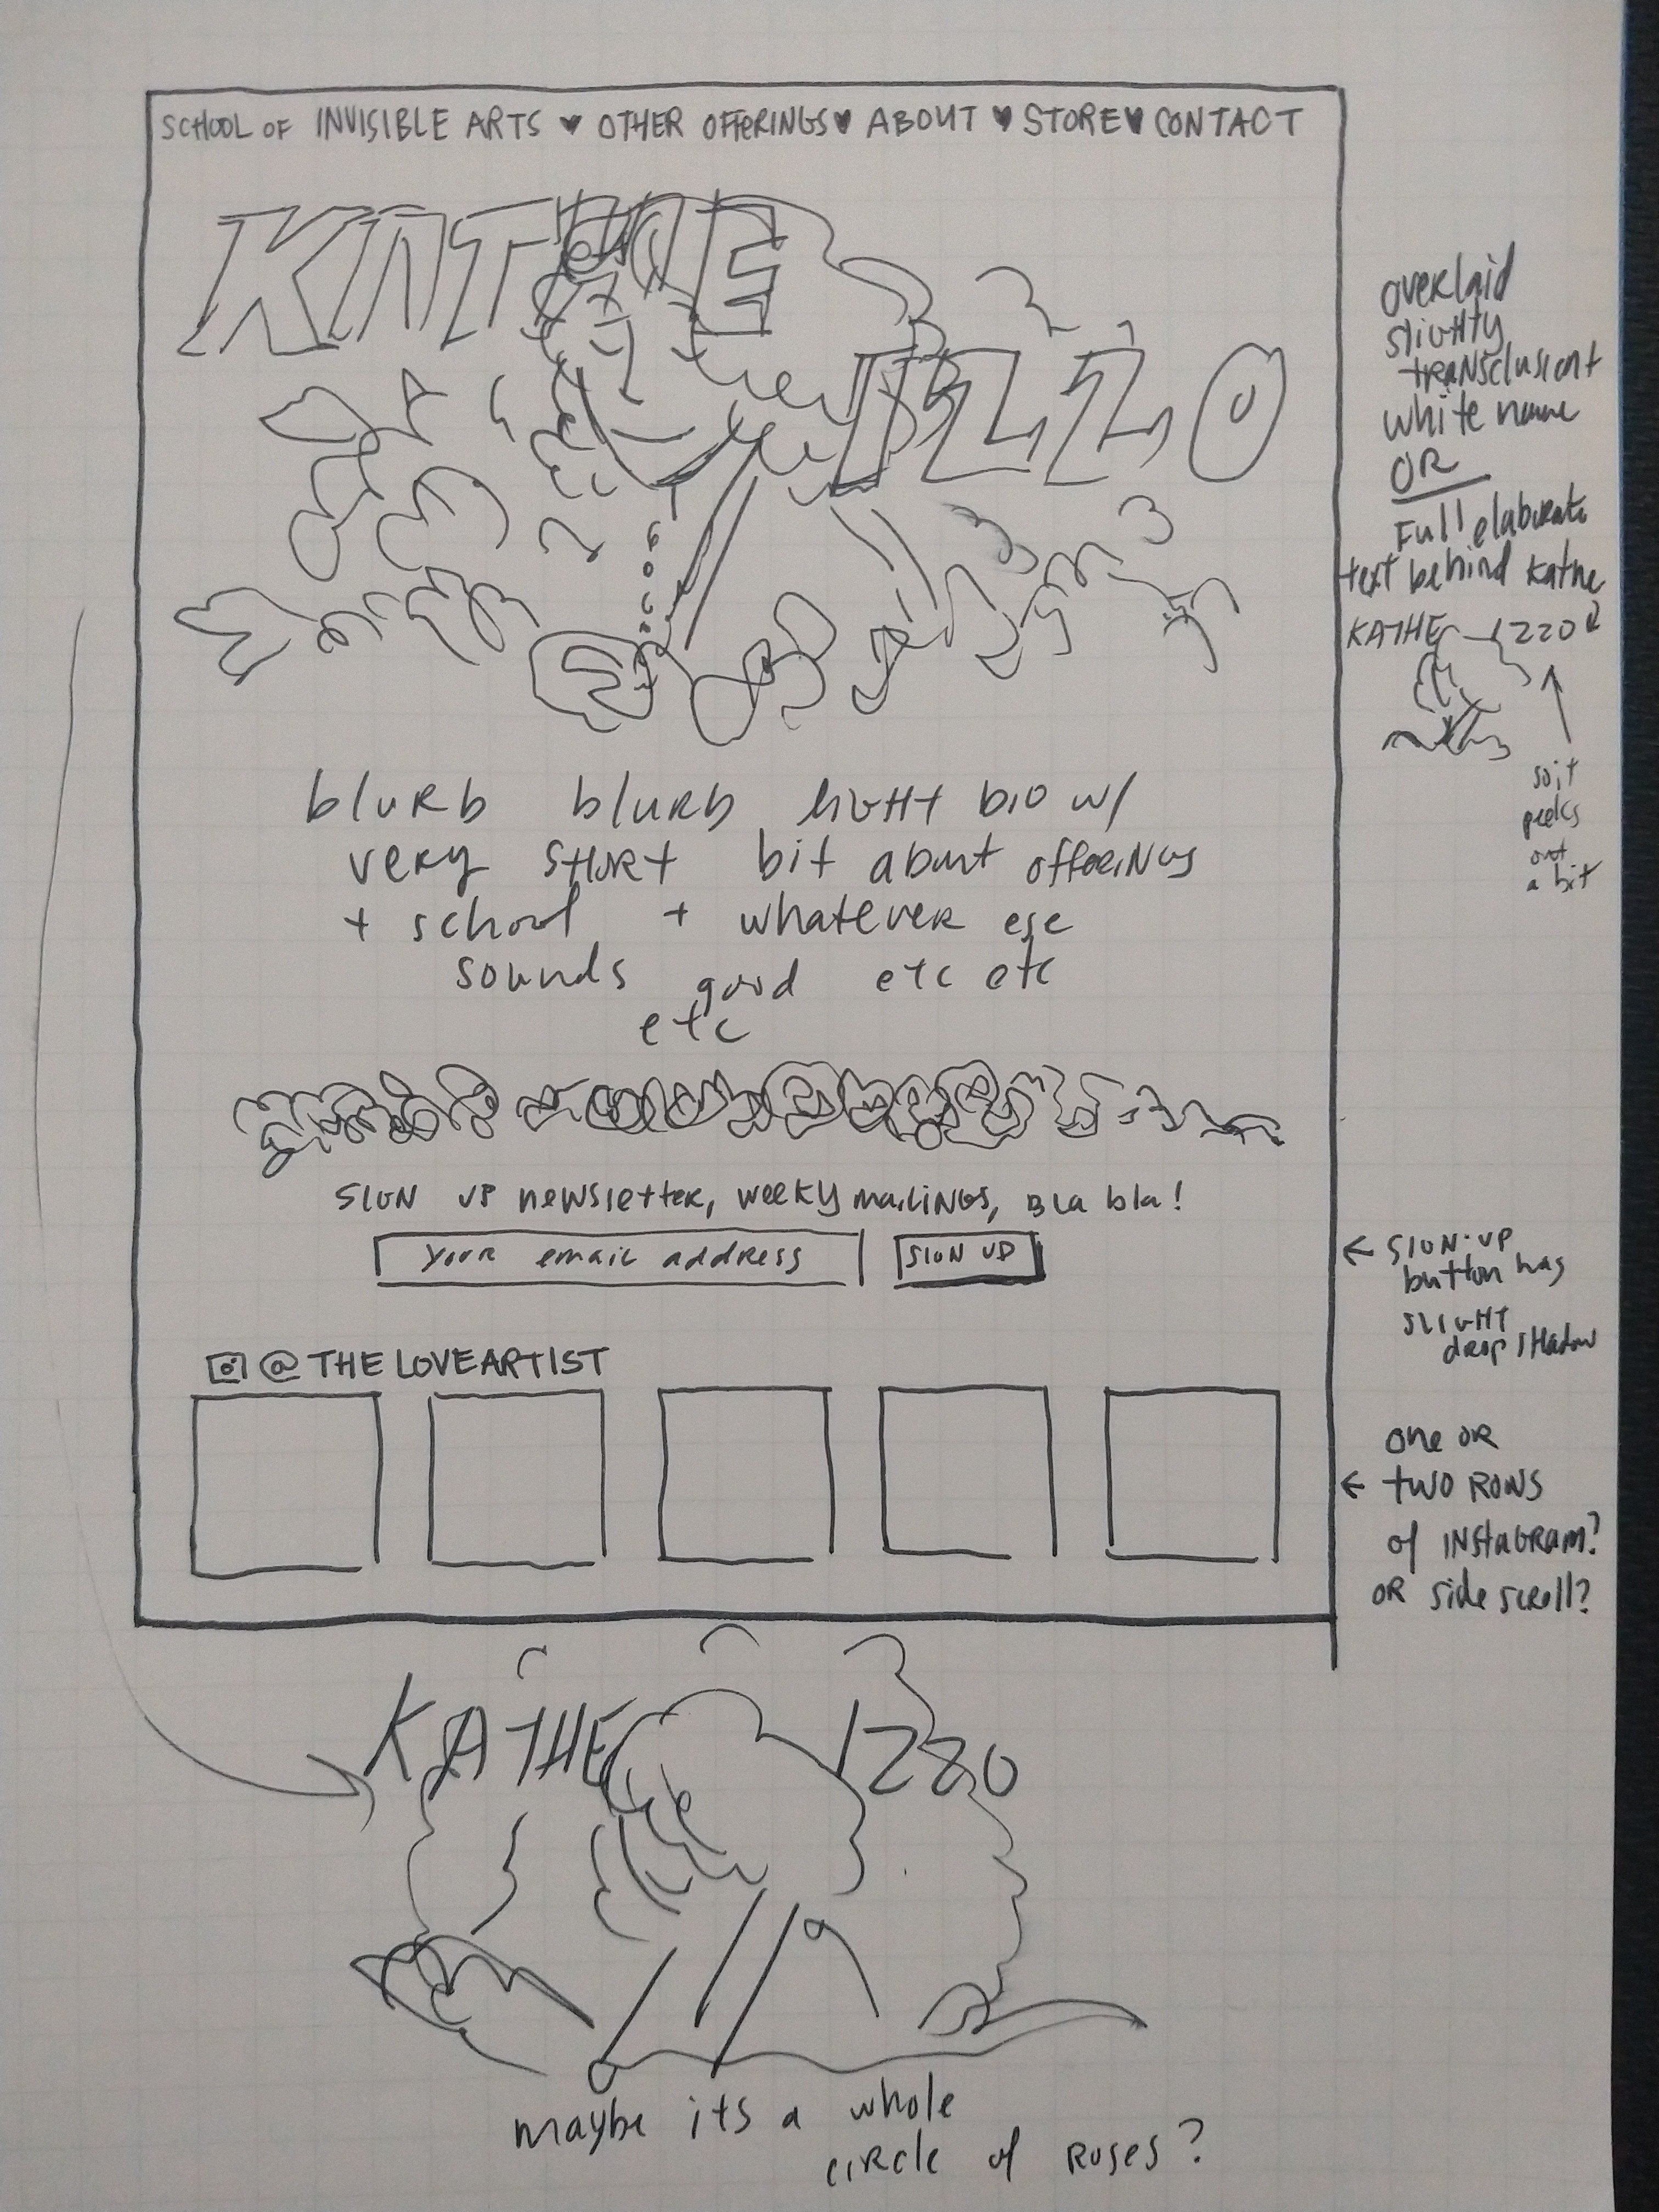 SCHOOL OF INVISIBLE ARTS ♥ OTHER OFFERINGS ♥ ABOUT ♥ STORE ♥ CONTACT
KATHE
IZZO
blurb blurb light bio w/
very short bit about offerings
+ school + whatever ese
sounds good etc etc
etc
SIGN UP newsletter, weekly mailings, bla bla!
your email address
SIGN UP
@THELOVEARTIST
overlaid
slightly
transclusient
white name
OR
Full elaborate
text behind Kathe
KATHE IZZO
so it
peeks
out
a bit
← SIGN-UP
button has
SLIGHT
drop shadow
one OR
← two ROWS
of INSTAGRAM?
OR side scroll?
KATHE IZZO
maybe its a whole
circle of roses?